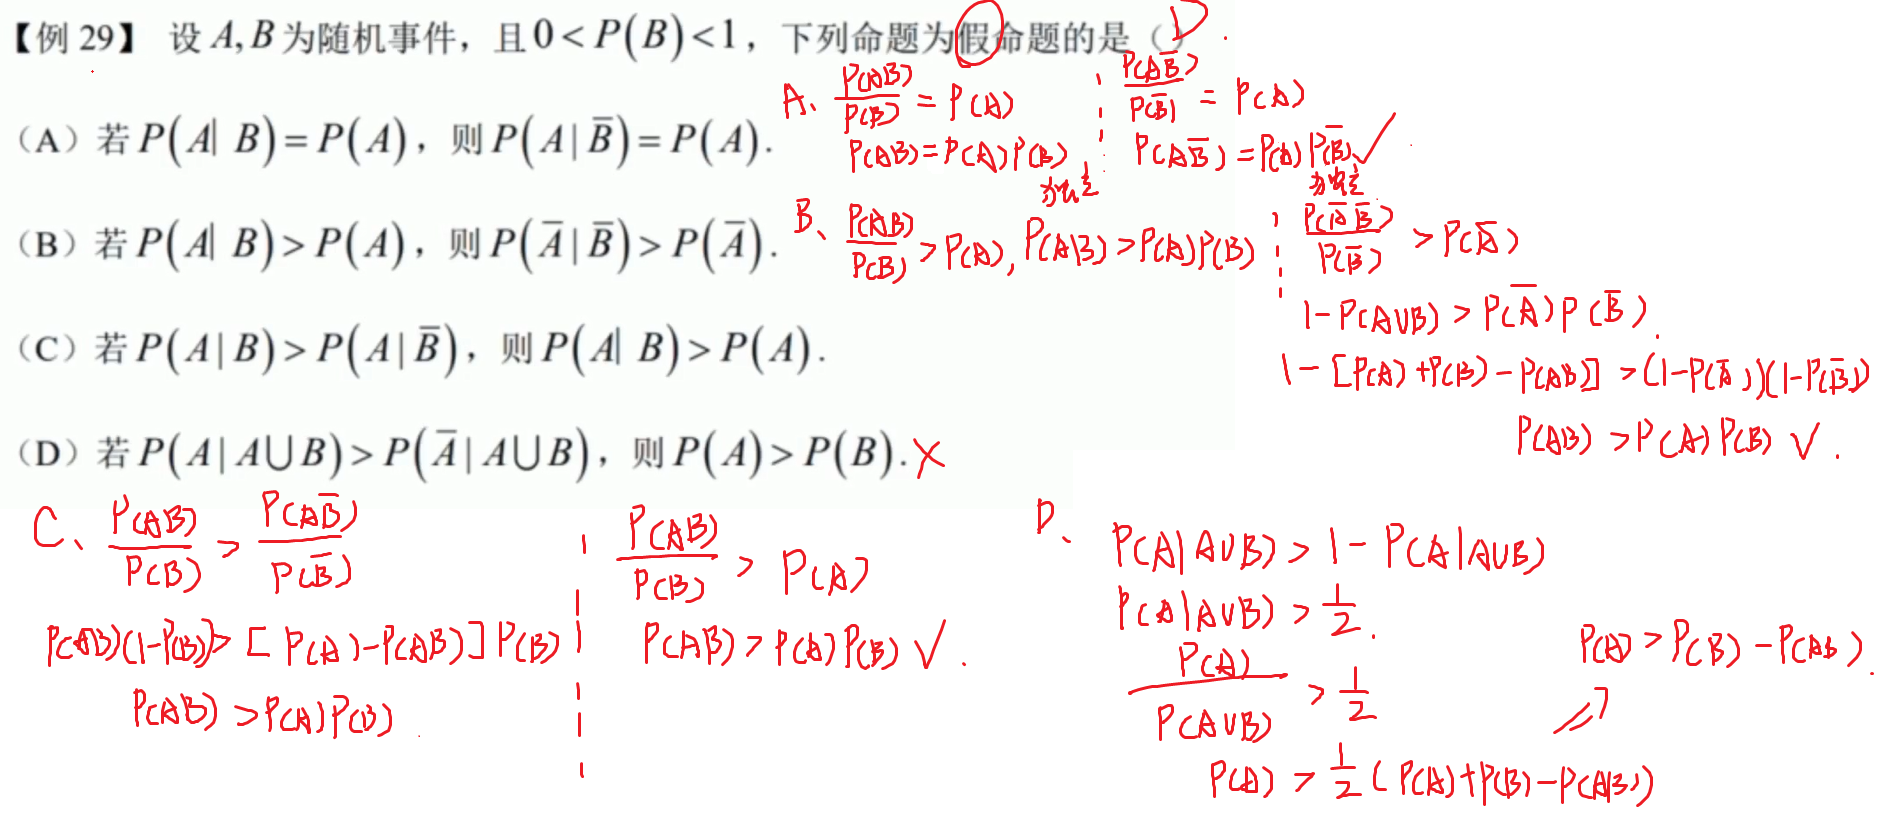 【例 29】 设 A,B 为随机事件，且 0<P(B)<1，下列命题为假命题的是（D）.
（A）若 P(A|B)=P(A)，则 P(A|B̅)=P(A).
（B）若 P(A|B)>P(A)，则 P(A̅|B̅)>P(A̅).
（C）若 P(A|B)>P(A|B̅)，则 P(A|B)>P(A).
（D）若 P(A|A∪B)>P(A̅|A∪B)，则 P(A)>P(B). ×
A、 P(AB)/P(B) = P(A)
P(AB)=P(A)P(B)
独立
P(AB̅)/P(B̅) = P(A)
P(AB̅)=P(A)P(B̅) ✓
独立
B、 P(AB)/P(B) > P(A), P(AB)>P(A)P(B)
P(A̅ B̅)/P(B̅) > P(A̅)
1-P(A∪B) > P(A̅)P(B̅).
1-[P(A)+P(B)-P(AB)] >(1-P(A̅))(1-P(B̅))
P(AB) >P(A)P(B) ✓.
C、 P(AB)/P(B) > P(AB̅)/P(B̅)
P(AB)(1-P(B))> [P(A)-P(AB)]P(B)
P(AB) >P(A)P(B).
P(AB)/P(B) > P(A)
P(AB)>P(A)P(B) ✓.
D、 P(A|A∪B) > 1-P(A|A∪B)
P(A|A∪B) > 1/2.
P(A)/P(A∪B) > 1/2
P(A) > 1/2 (P(A)+P(B)-P(AB))
⇒ P(A)>P(B)-P(AB).